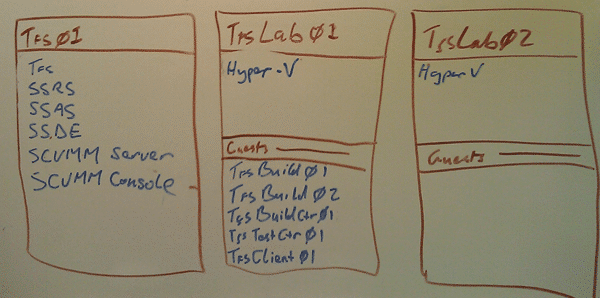 TFS Ø1
TFS
SSRS
SSAS
SSDE
SCVMM Server
SCVMM Console
TfsLab Ø1
Hyper-V
Guests
TFSBuild Ø1
TFSBuild Ø2
TfsBuildCtrØ1
TfsTestCtrØ1
TFSClient Ø1
TfsLab Ø2
Hyper V
Guests